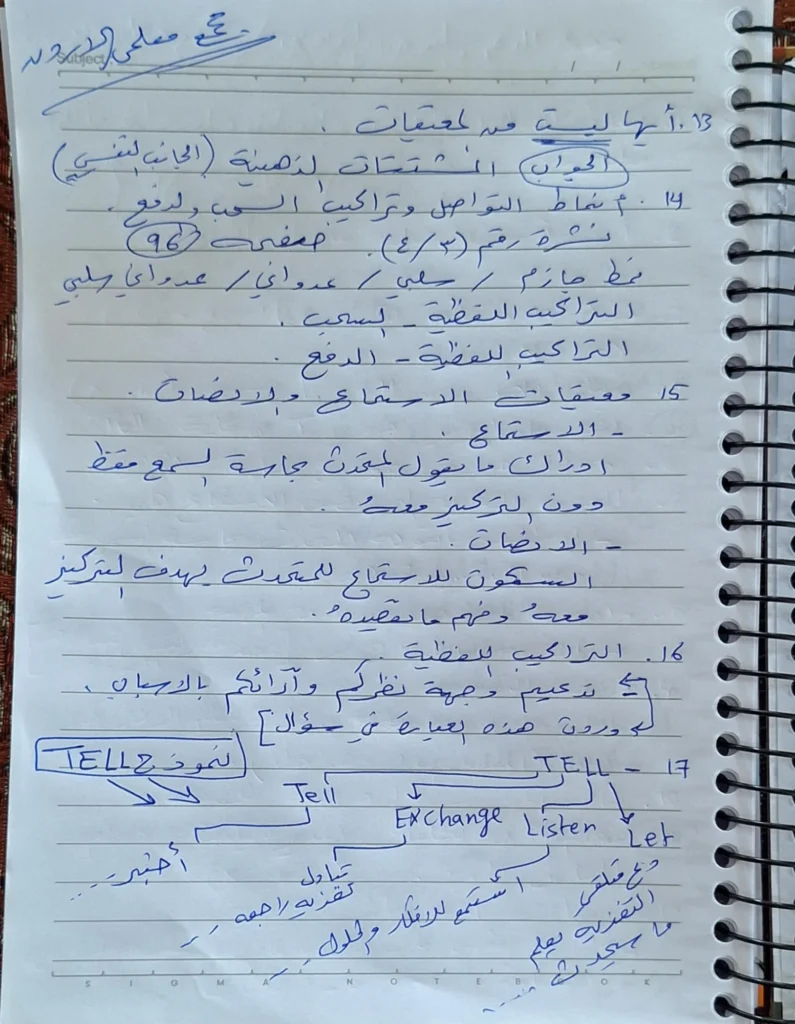 تجمع معلمي الاردن
Subject
13. أيها ليست من المعيقات.
الجواب المشتتات الذهنية (الجانب النفسي)
14. أنماط التواصل وتراكيب السحب والدفع.
نشرة رقم (٣/٤). صفحه 96
نمط حازم / سلبي / عدواني / عدواني سلبي
التراكيب اللفظية - السحب.
التراكيب اللفظية - الدفع.
15 معيقات الاستماع والانصات.
- الاستماع.
ادراك ما يقول المتحدث بحاسة السمع فقط
دون التركيز معهُ.
- الانصات.
السكون للاستماع للمتحدث بهدف التركيز
معهُ وفهم ما يقصدهُ.
16. التراكيب اللفظية.
تدعيم وجهة نظركم وآرائكم بالاسباب.
ورون هذه العبارة في سؤال]
17 - TELL نموذج TELL
Tell Exchange Listen Let
أخبر ....
تبادل
تغذيه راجعه ..
استمع للافكار والحلول ..
دع متلقي
التغذيه يعلم
ما سيحدث ....
SIGMA NOTEBOOK